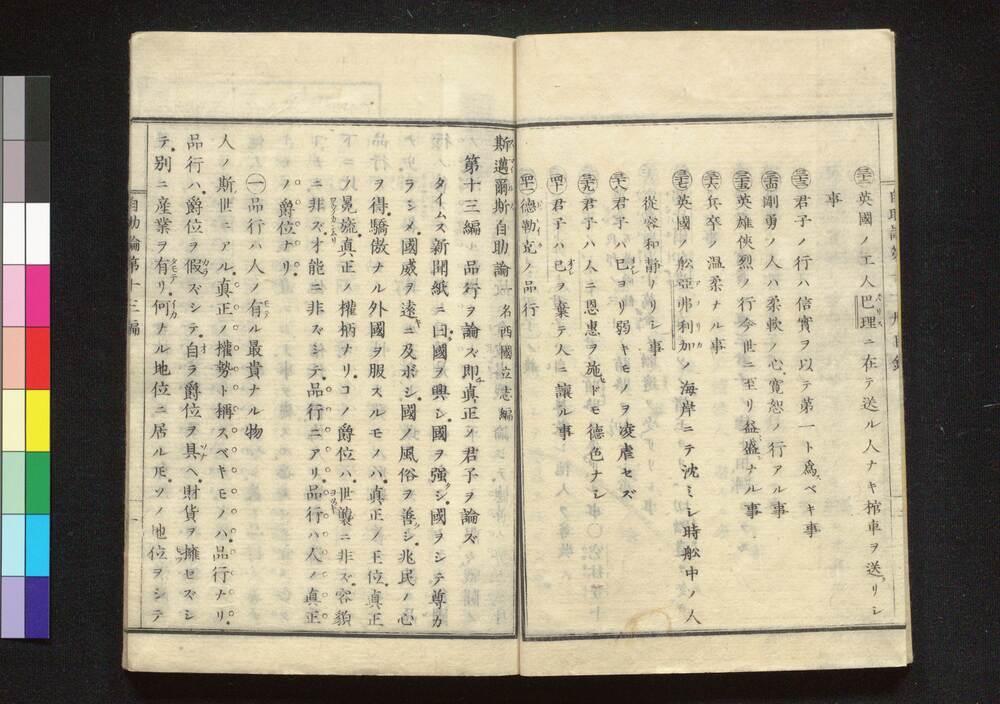 英國ノ工人巴理ニ在テ送ル人ナキ棺車ヲ送リシ
事
君子ノ行ハ信實ヲ以テ第一ト爲ベキ事
剛勇ノ人ハ柔軟ノ心寛恕ノ行アル事
英雄俠烈ノ行今世ニ至リ益盛ナル事
兵卒ノ溫柔ナル事
英國ノ舩亞弗利加ノ海岸ニテ沈ミシ時舩中ノ人
從容和靜ナリシ事
君子ハ已ヨリ弱キモノヲ凌虐セズ
君子ハ人ニ恩惠ヲ施ドモ德色ナシ
君子ハ已ヲ棄テ人ニ讓ル事
德勒克ノ品行
斯邁爾斯自助論 一名西國立志編
第十三編 品行ヲ論ズ即真正ノ君子ヲ論ズ
タイムス新聞紙ニ曰國ヲ興シ國ヲ強シ國ヲシテ尊カ
ラシメ國威ヲ遠ニ及ボシ國ノ風俗ヲ善シ兆民ノ心
ヲ得驕傲ナル外國ヲ服スルモノハ真正ノ王位真正
ノ冕旒真正ノ權柄ナリコノ爵位ハ世襲ニ非ズ容貌
ニ非ズオ能ニ非ズシテ品行ニアリ品行ハ人ノ真正
ノ爵位ナリ
一 品行ハ人ノ有ル最貴ナル物
人ノ斯世ニアル真正ノ權勢ト稱スベキモノハ品行ナリ
品行ハ爵位ヲ假ズシテ自ラ爵位ヲ具ヘ財貨ヲ擁セズシ
テ別ニ産業ヲ有リ何ナル地位ニ居ルモソノ地位ヲシテ
自助論第十三編